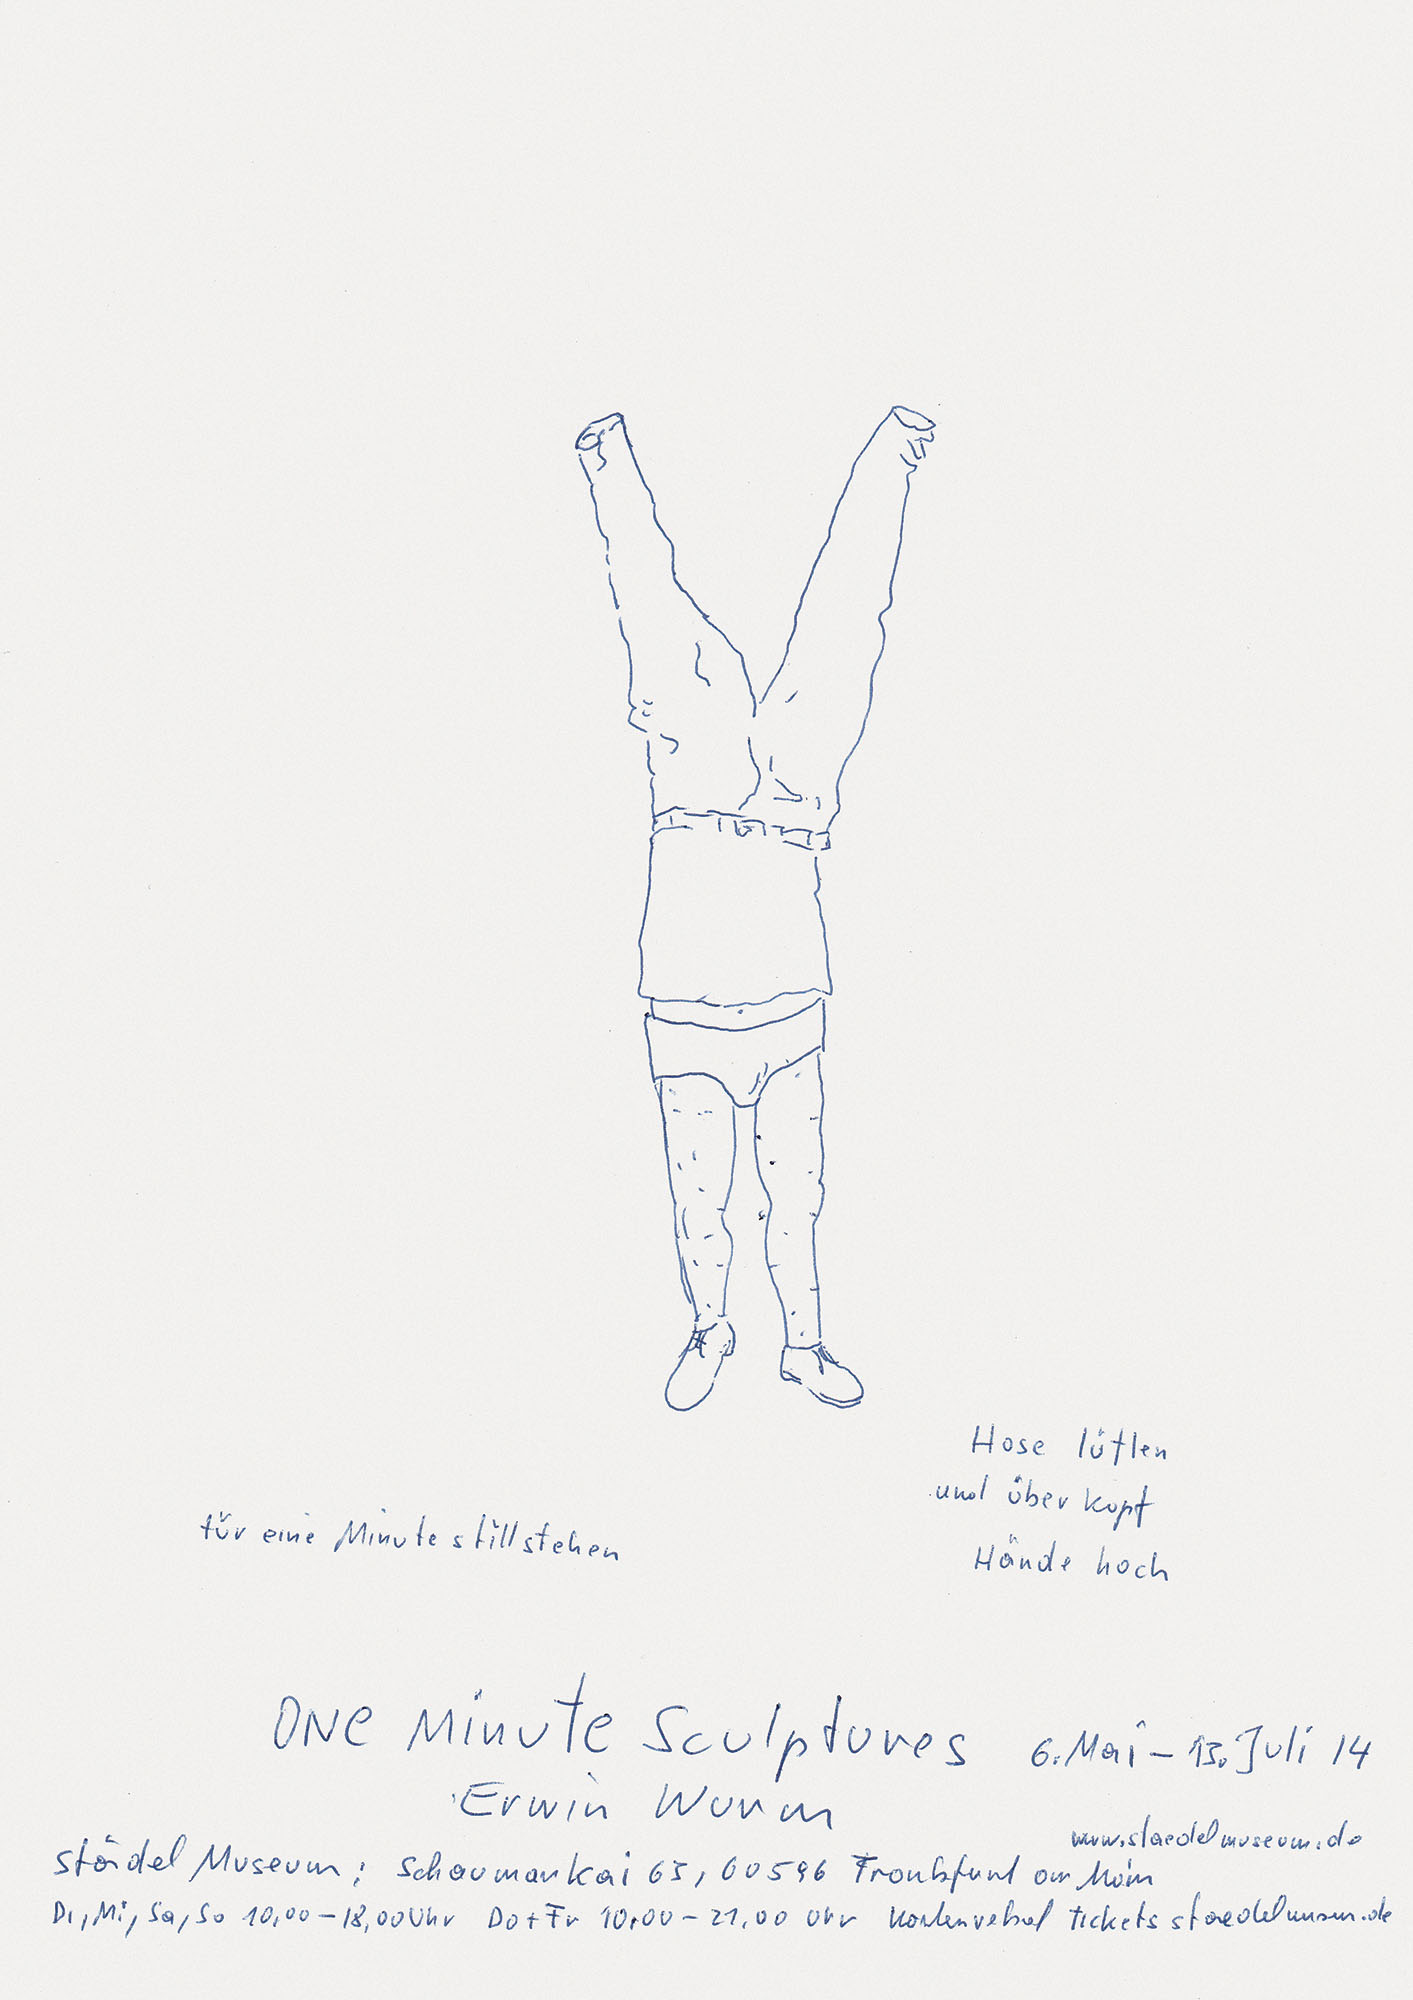 Hose lüften
und über Kopf
Hände hoch
für eine Minute stillstehen
One Minute Sculptures 6. Mai – 13. Juli 14
Erwin Wurm
www.staedelmuseum.de
Städel Museum; Schaumankai 63, 60596 Frankfurt am Main
Di, Mi, Sa, So 10,00 – 18,00 Uhr Do + Fr 10,00 – 21,00 Uhr tickets staedelmuseum.de